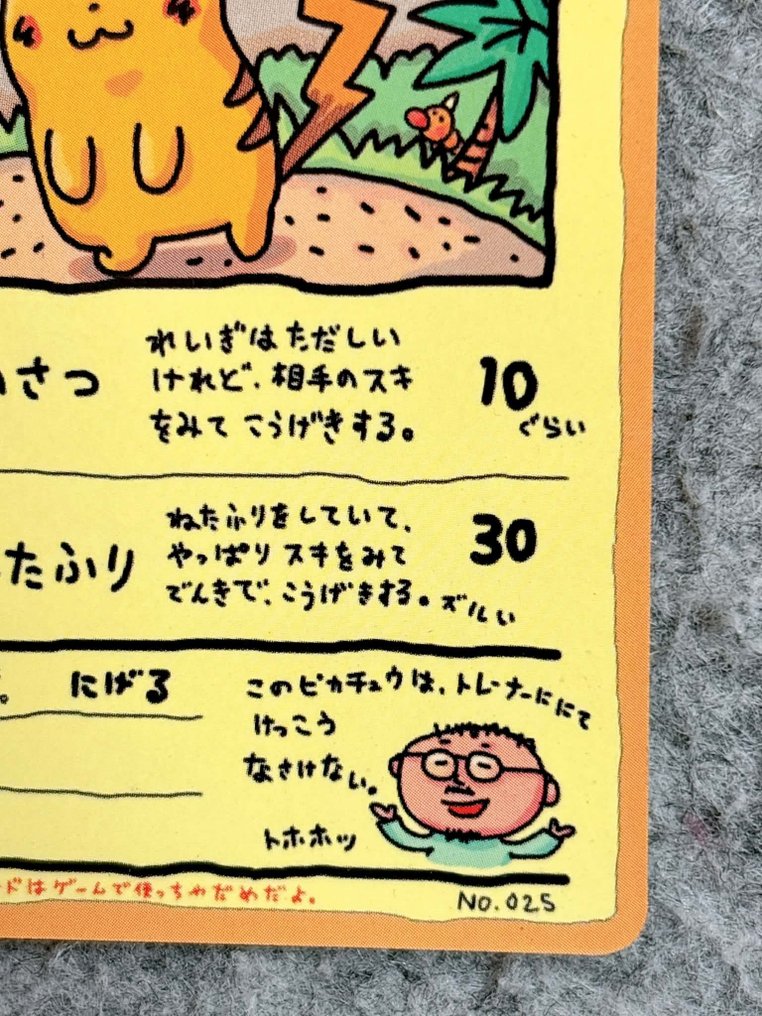 さつ
れいぎはただしい
けれど、相手のスキ
をみて こうげきする。
10
ぐらい
たふり
ねたふりをしていて、
やっぱり スキをみて
でんきで、こうげきする。ズルい
30
にげる
このピカチュウは、トレーナーににて
けっこう
なさけない。
トホホッ
ドはゲームで使っちゃだめだよ。
NO.025